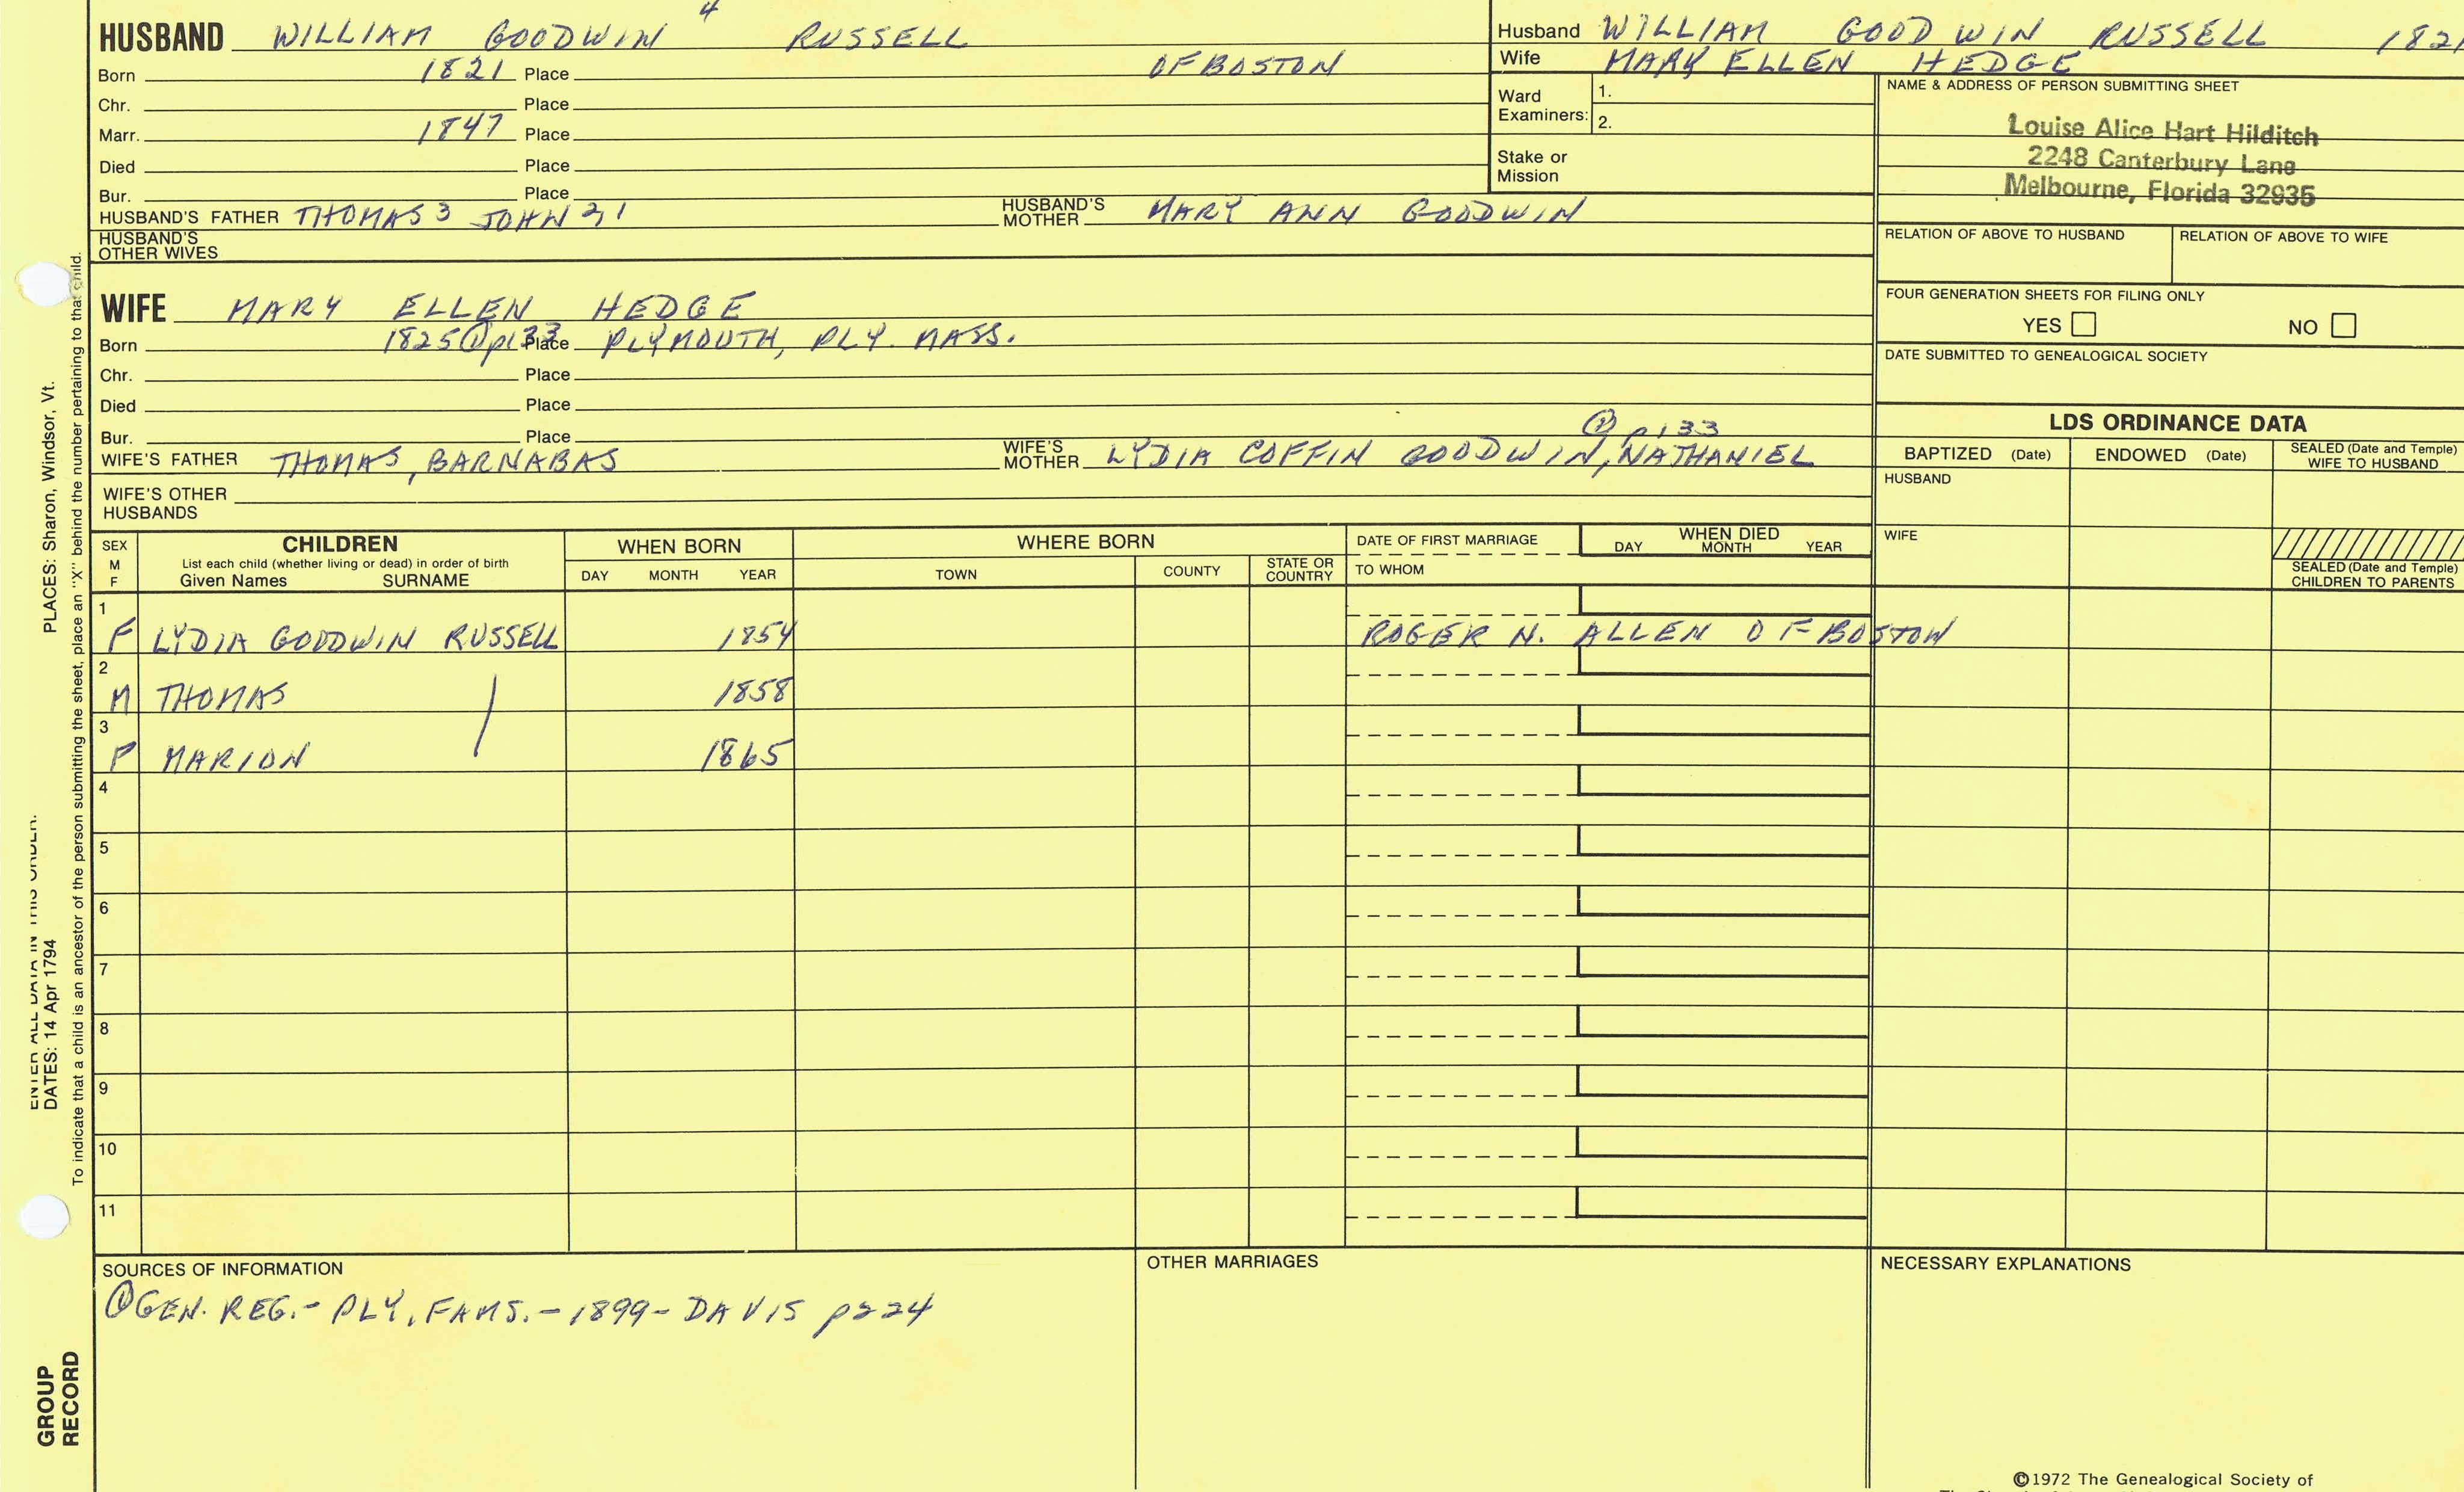 HUSBAND WILLIAM GOODWIN 4 RUSSELL
Born 1821 Place OF BOSTON
Chr. Place
Marr. 1847 Place
Died Place
Bur. Place
HUSBAND'S FATHER THOMAS 3 JOHN 2 1 HUSBAND'S MOTHER MARY ANN GOODWIN
HUSBAND'S OTHER WIVES
Husband WILLIAM GOODWIN RUSSELL 1821
Wife MARY ELLEN HEDGE
Ward Examiners: 1.
2.
Stake or Mission
NAME & ADDRESS OF PERSON SUBMITTING SHEET
Louise Alice Hart Hilditch
2248 Canterbury Lane
Melbourne, Florida 32935
RELATION OF ABOVE TO HUSBAND RELATION OF ABOVE TO WIFE
FOUR GENERATION SHEETS FOR FILING ONLY
YES NO
DATE SUBMITTED TO GENEALOGICAL SOCIETY
WIFE MARY ELLEN HEDGE
Born 1825 ① p133 Place PLYMOUTH, PLY. MASS.
Chr. Place
Died Place
Bur. Place
① p133
WIFE'S FATHER THOMAS, BARNABAS WIFE'S MOTHER LYDIA COFFIN GOODWIN, NATHANIEL
WIFE'S OTHER HUSBANDS
LDS ORDINANCE DATA
BAPTIZED (Date) ENDOWED (Date) SEALED (Date and Temple) WIFE TO HUSBAND
HUSBAND
WIFE
SEALED (Date and Temple) CHILDREN TO PARENTS
SEX M F
CHILDREN
List each child (whether living or dead) in order of birth
Given Names SURNAME
WHEN BORN
DAY MONTH YEAR
WHERE BORN
TOWN COUNTY STATE OR COUNTRY
DATE OF FIRST MARRIAGE
TO WHOM
WHEN DIED
DAY MONTH YEAR
1
F LYDIA GOODWIN RUSSELL 1854 ROGER N. ALLEN OF BOSTON
2
M THOMAS 1858
3
F MARION 1865
4
5
6
7
8
9
10
11
SOURCES OF INFORMATION
① GEN. REG.- PLY. FAMS. - 1899 - DAVIS p224
OTHER MARRIAGES
NECESSARY EXPLANATIONS
©1972 The Genealogical Society of
ENTER ALL DATA IN THIS ORDER:
DATES: 14 Apr 1794 PLACES: Sharon, Windsor, Vt.
To indicate that a child is an ancestor of the person submitting the sheet, place an "X" behind the number pertaining to that child.
GROUP RECORD